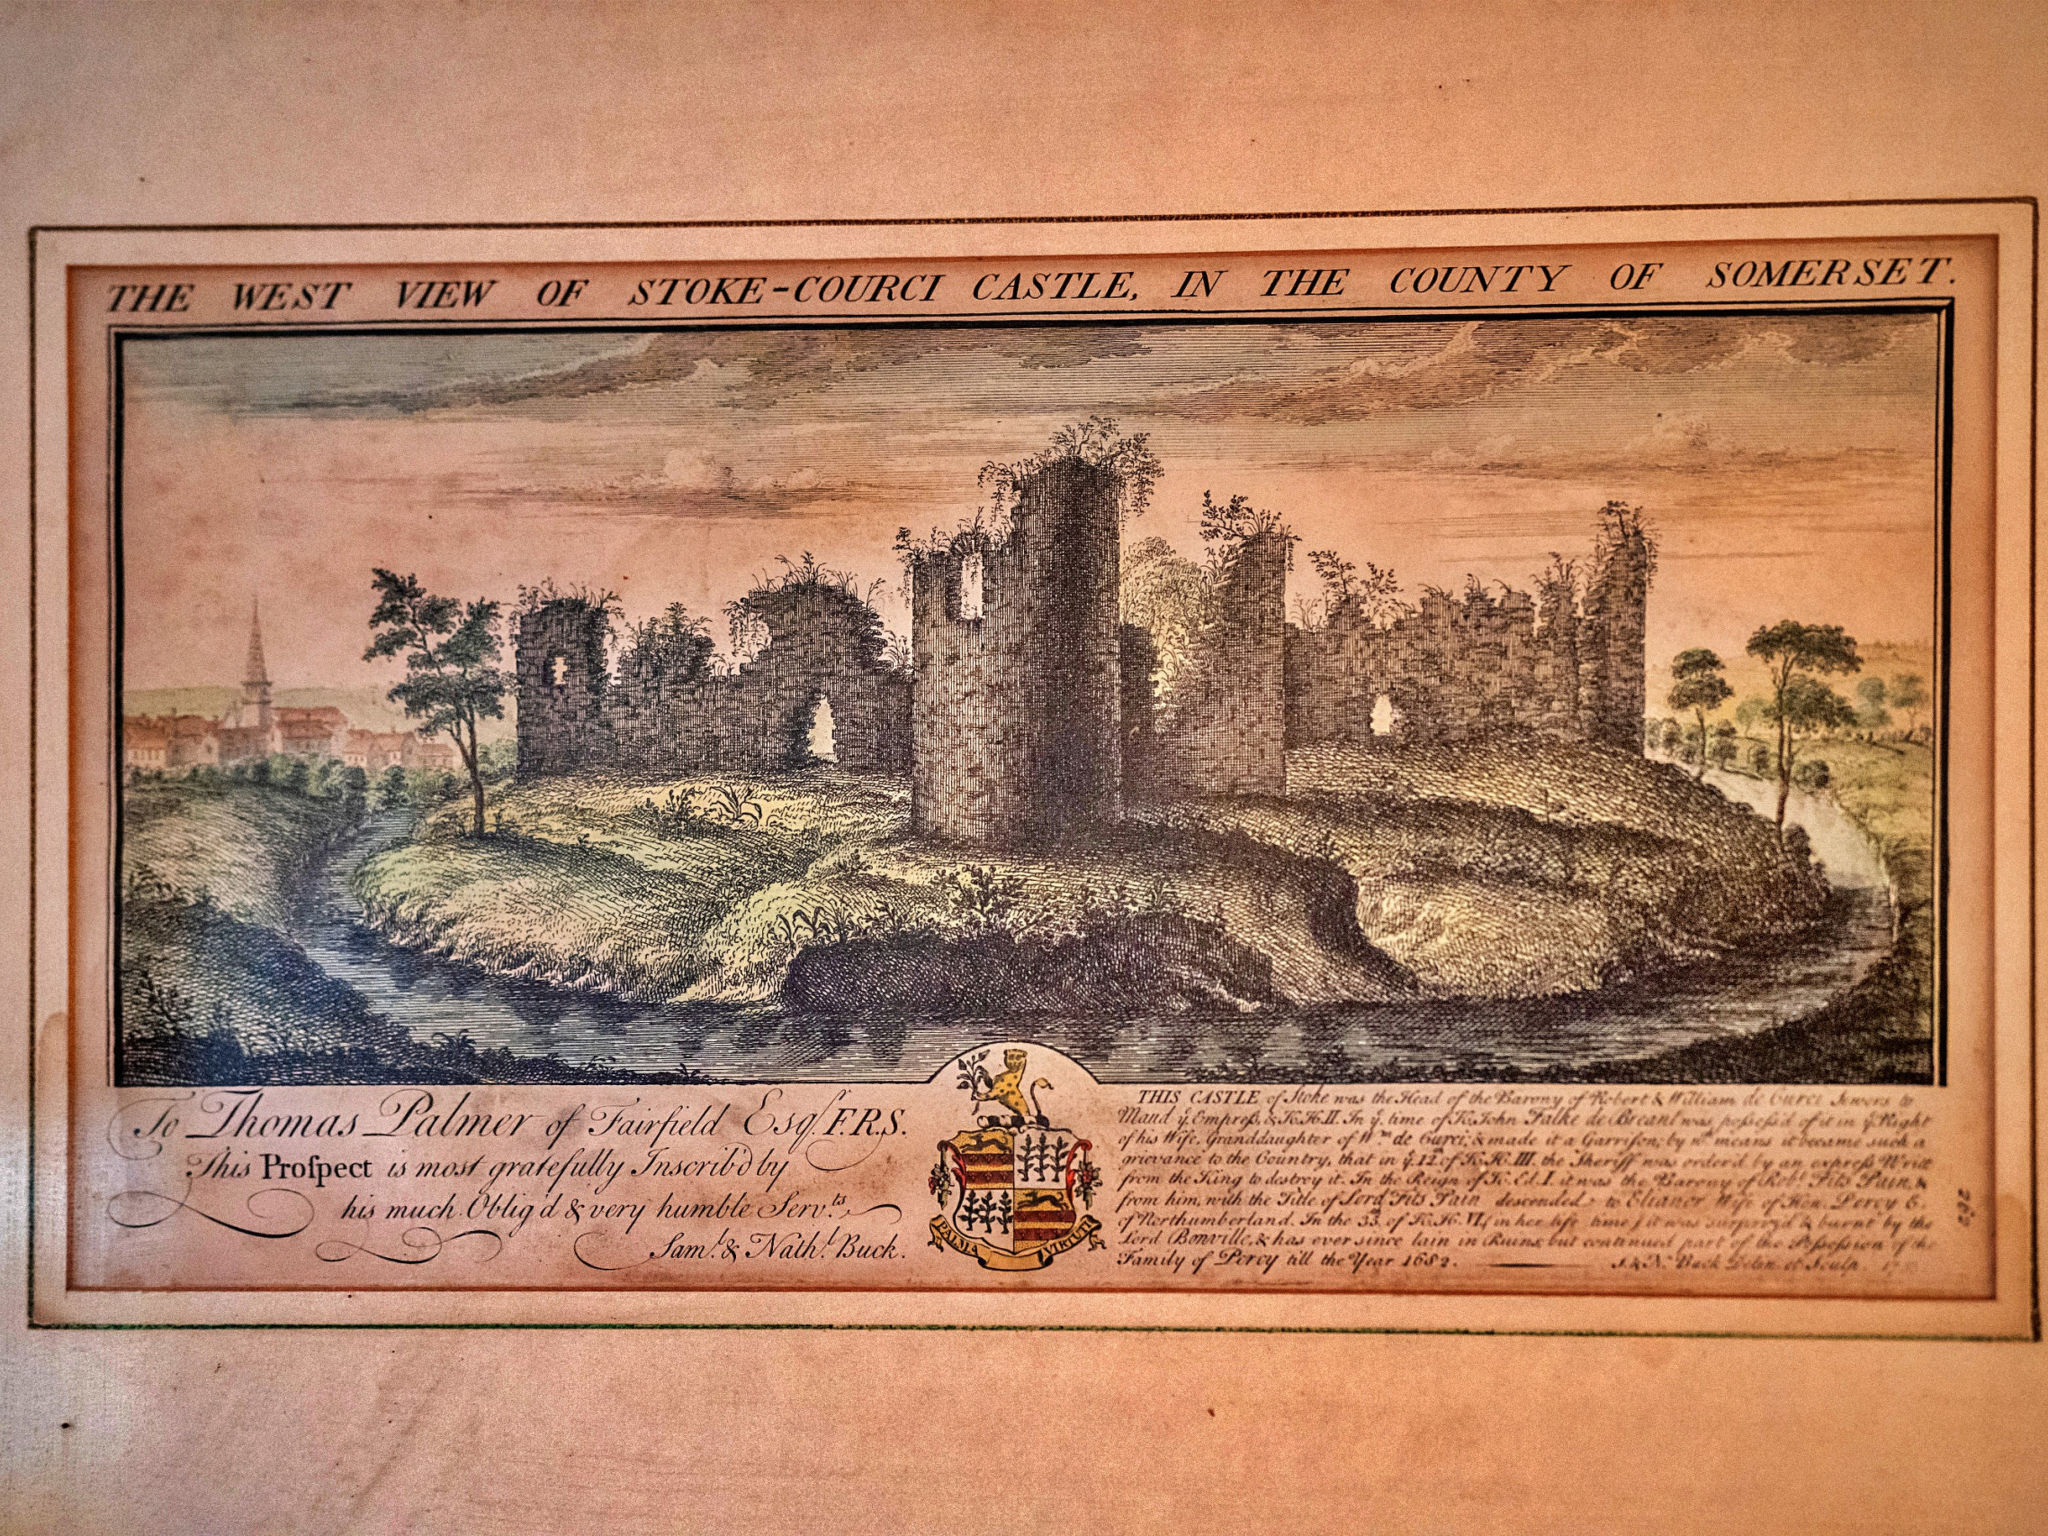 THE WEST VIEW OF STOKE-COURCI CASTLE, IN THE COUNTY OF SOMERSET.
To Thomas Palmer of Fairfield Esqr. F.R.S.
This Proſpect is most gratefully Inscrib'd by
his much Oblig'd & very humble Servts.
Saml. & Nathl. Buck.
PALMA VIRTUTI
THIS CASTLE of Stoke was the Head of the Barony of Robert & William de Curci Sewers to
Maud ye. Empreſs, & K. H. II. In ye. time of K. John Falke de Breant was poſseſs'd of it in ye. Right
of his Wife, Granddaughter of Wm. de Curci; & made it a Garriſon; by wch. means it became such a
grievance to the Country, that in ye. 12th. of K. H. III. the Sheriff was order'd by an expreſs Writt
from the King to destroy it. In the Reign of K. Ed. I. it was the Barony of Robt. Fits Pain, &
from him, with the Title of Lord Fits Pain descended to Elianor Wife of Hen. Percy E.
of Northumberland. In the 33d. of K. H. VI. (in her life time) it was surpriz'd & burnt by the
Lord Bonville, & has ever since lain in Ruins, but continued part of the Poſseſsion of the
Family of Percy till the Year 1682. S. & N. Buck Delin. et Sculp.